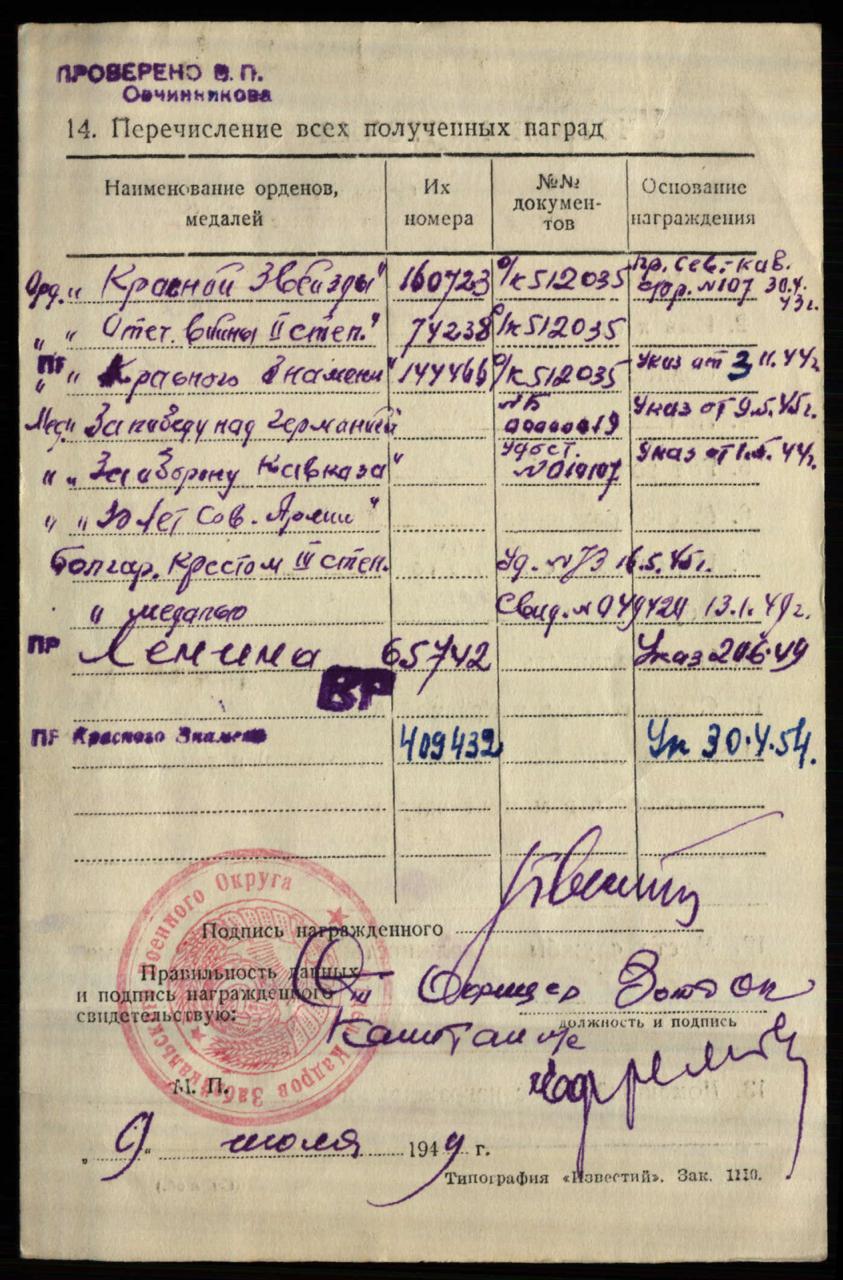 ПРОВЕРЕНО В. П.
Овчинникова
14. Перечисление всех полученных наград
Наименование орденов, медалей
Их номера
№№ документов
Основание награждения
Орд. „ Красной Звезды" 160723 о/к 512035 пр. сев.-кав. фр. №107 30.4.43г.
„ „ Отеч. войны II степ." 74238 о/к 512035
ПГ „ „ Красного Знамени" 144466 о/к 512035 Указ от 3 11.44г.
Мед. За победу над Германией Указ от 9.5.45г.
„ „ За оборону Кавказа" Удост. Указ от 1.5.44г.
„ „ 30 лет Сов. Армии"
Болгар. крестом III степ. Уд. №73 16.5.45г.
„ медалью Свид. № 13.1.49г.
ПР Ленина 65742 Указ 20.6.49
ВР
ПГ Красного Знамени 409432 Ук 30.4.54.
Подпись награжденного
Правильность данных
и подпись награжденного
свидетельствую:
Офицер
должность и подпись
Капитан
М. П.
„ 9 " июля 1949 г.
Типография «Известий». Зак. 1110.